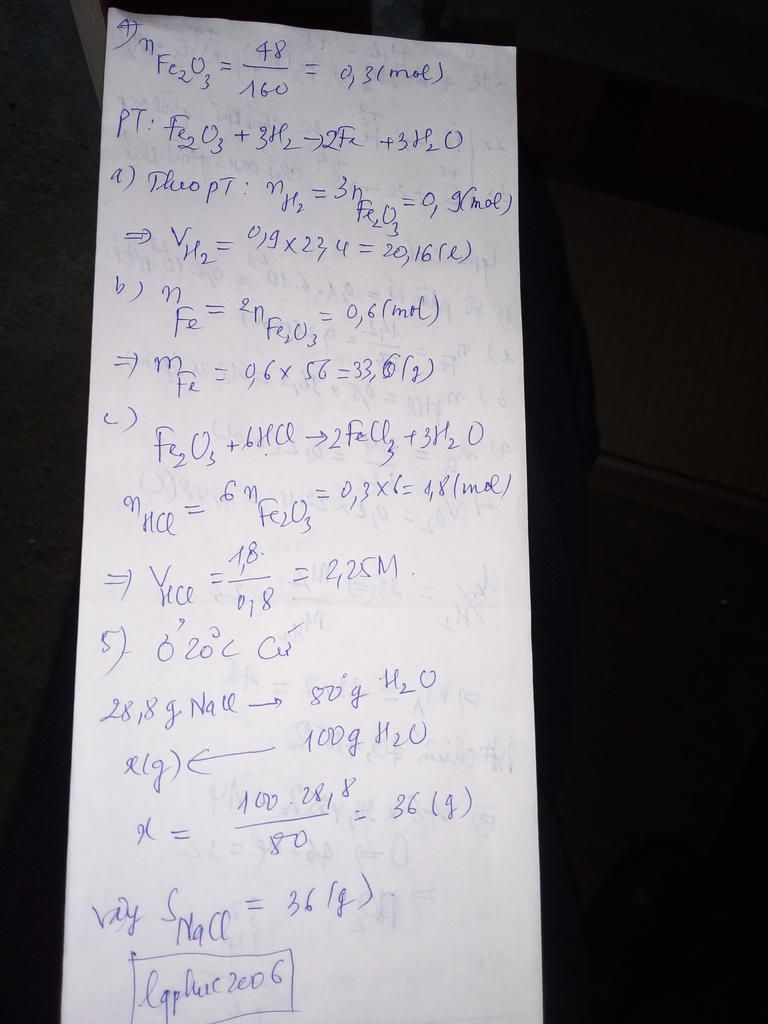 4) nFe2O3 = 48/160 = 0,3 (mol)
PT: Fe2O3 + 3H2 → 2Fe + 3H2O
a) Theo PT: nH2 = 3nFe2O3 = 0,9 (mol)
⇒ VH2 = 0,9 x 22,4 = 20,16 (l)
b) nFe = 2nFe2O3 = 0,6 (mol)
⇒ mFe = 0,6 x 56 = 33,6 (g)
c)
Fe2O3 + 6HCl → 2FeCl3 + 3H2O
nHCl = 6nFe2O3 = 0,3x6 = 1,8 (mol)
⇒ VHCl = 1,8/0,8 = 2,25M.
5) Ở 20°C Cứ
28,8g NaCl → 80g H2O
x(g) ← 100g H2O
x = 100.28,8/80 = 36 (g)
vậy SNaCl = 36 (g)
lqphuc2006